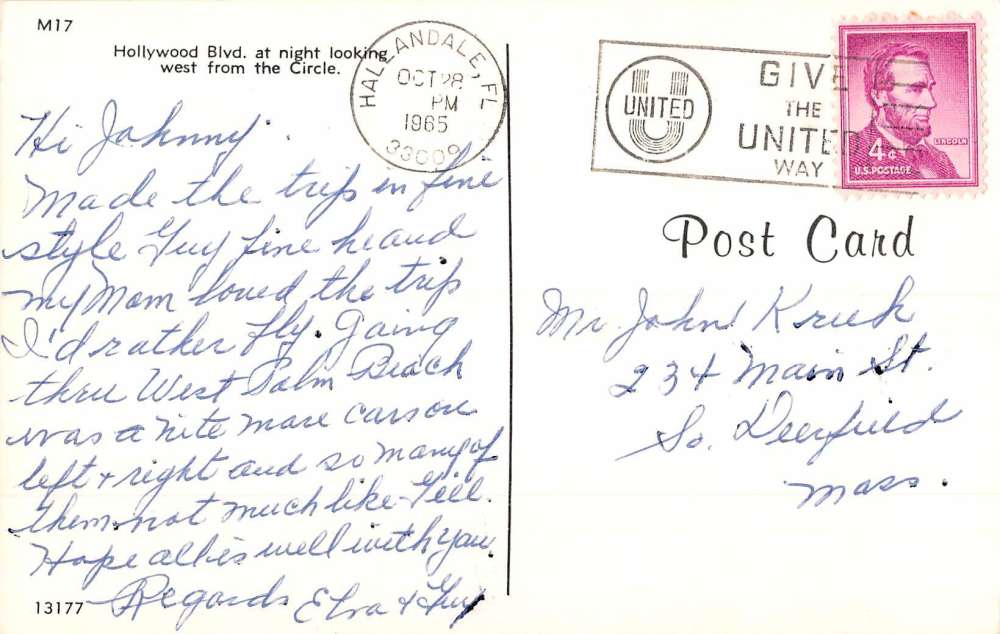 M17
Hollywood Blvd. at night looking
west from the Circle.
Hi Johnny.
Made the trip in fine
style Guy fine heaud
my Mom loved the trip
I'd rather fly. Going
thru West Palm Beach
was a nite mare cars on
left + right and so many of
them not much like
Hope all is well with you
Regards Elva + Guy
13177
HALLANDALE, FL
OCT 28
PM
1965
33009
UNITED
GIVE
THE
UNITED
WAY
LINCOLN
4¢
U.S. POSTAGE
Post Card
Mr. John
234 Main St.
So. Deerfield
Mass.